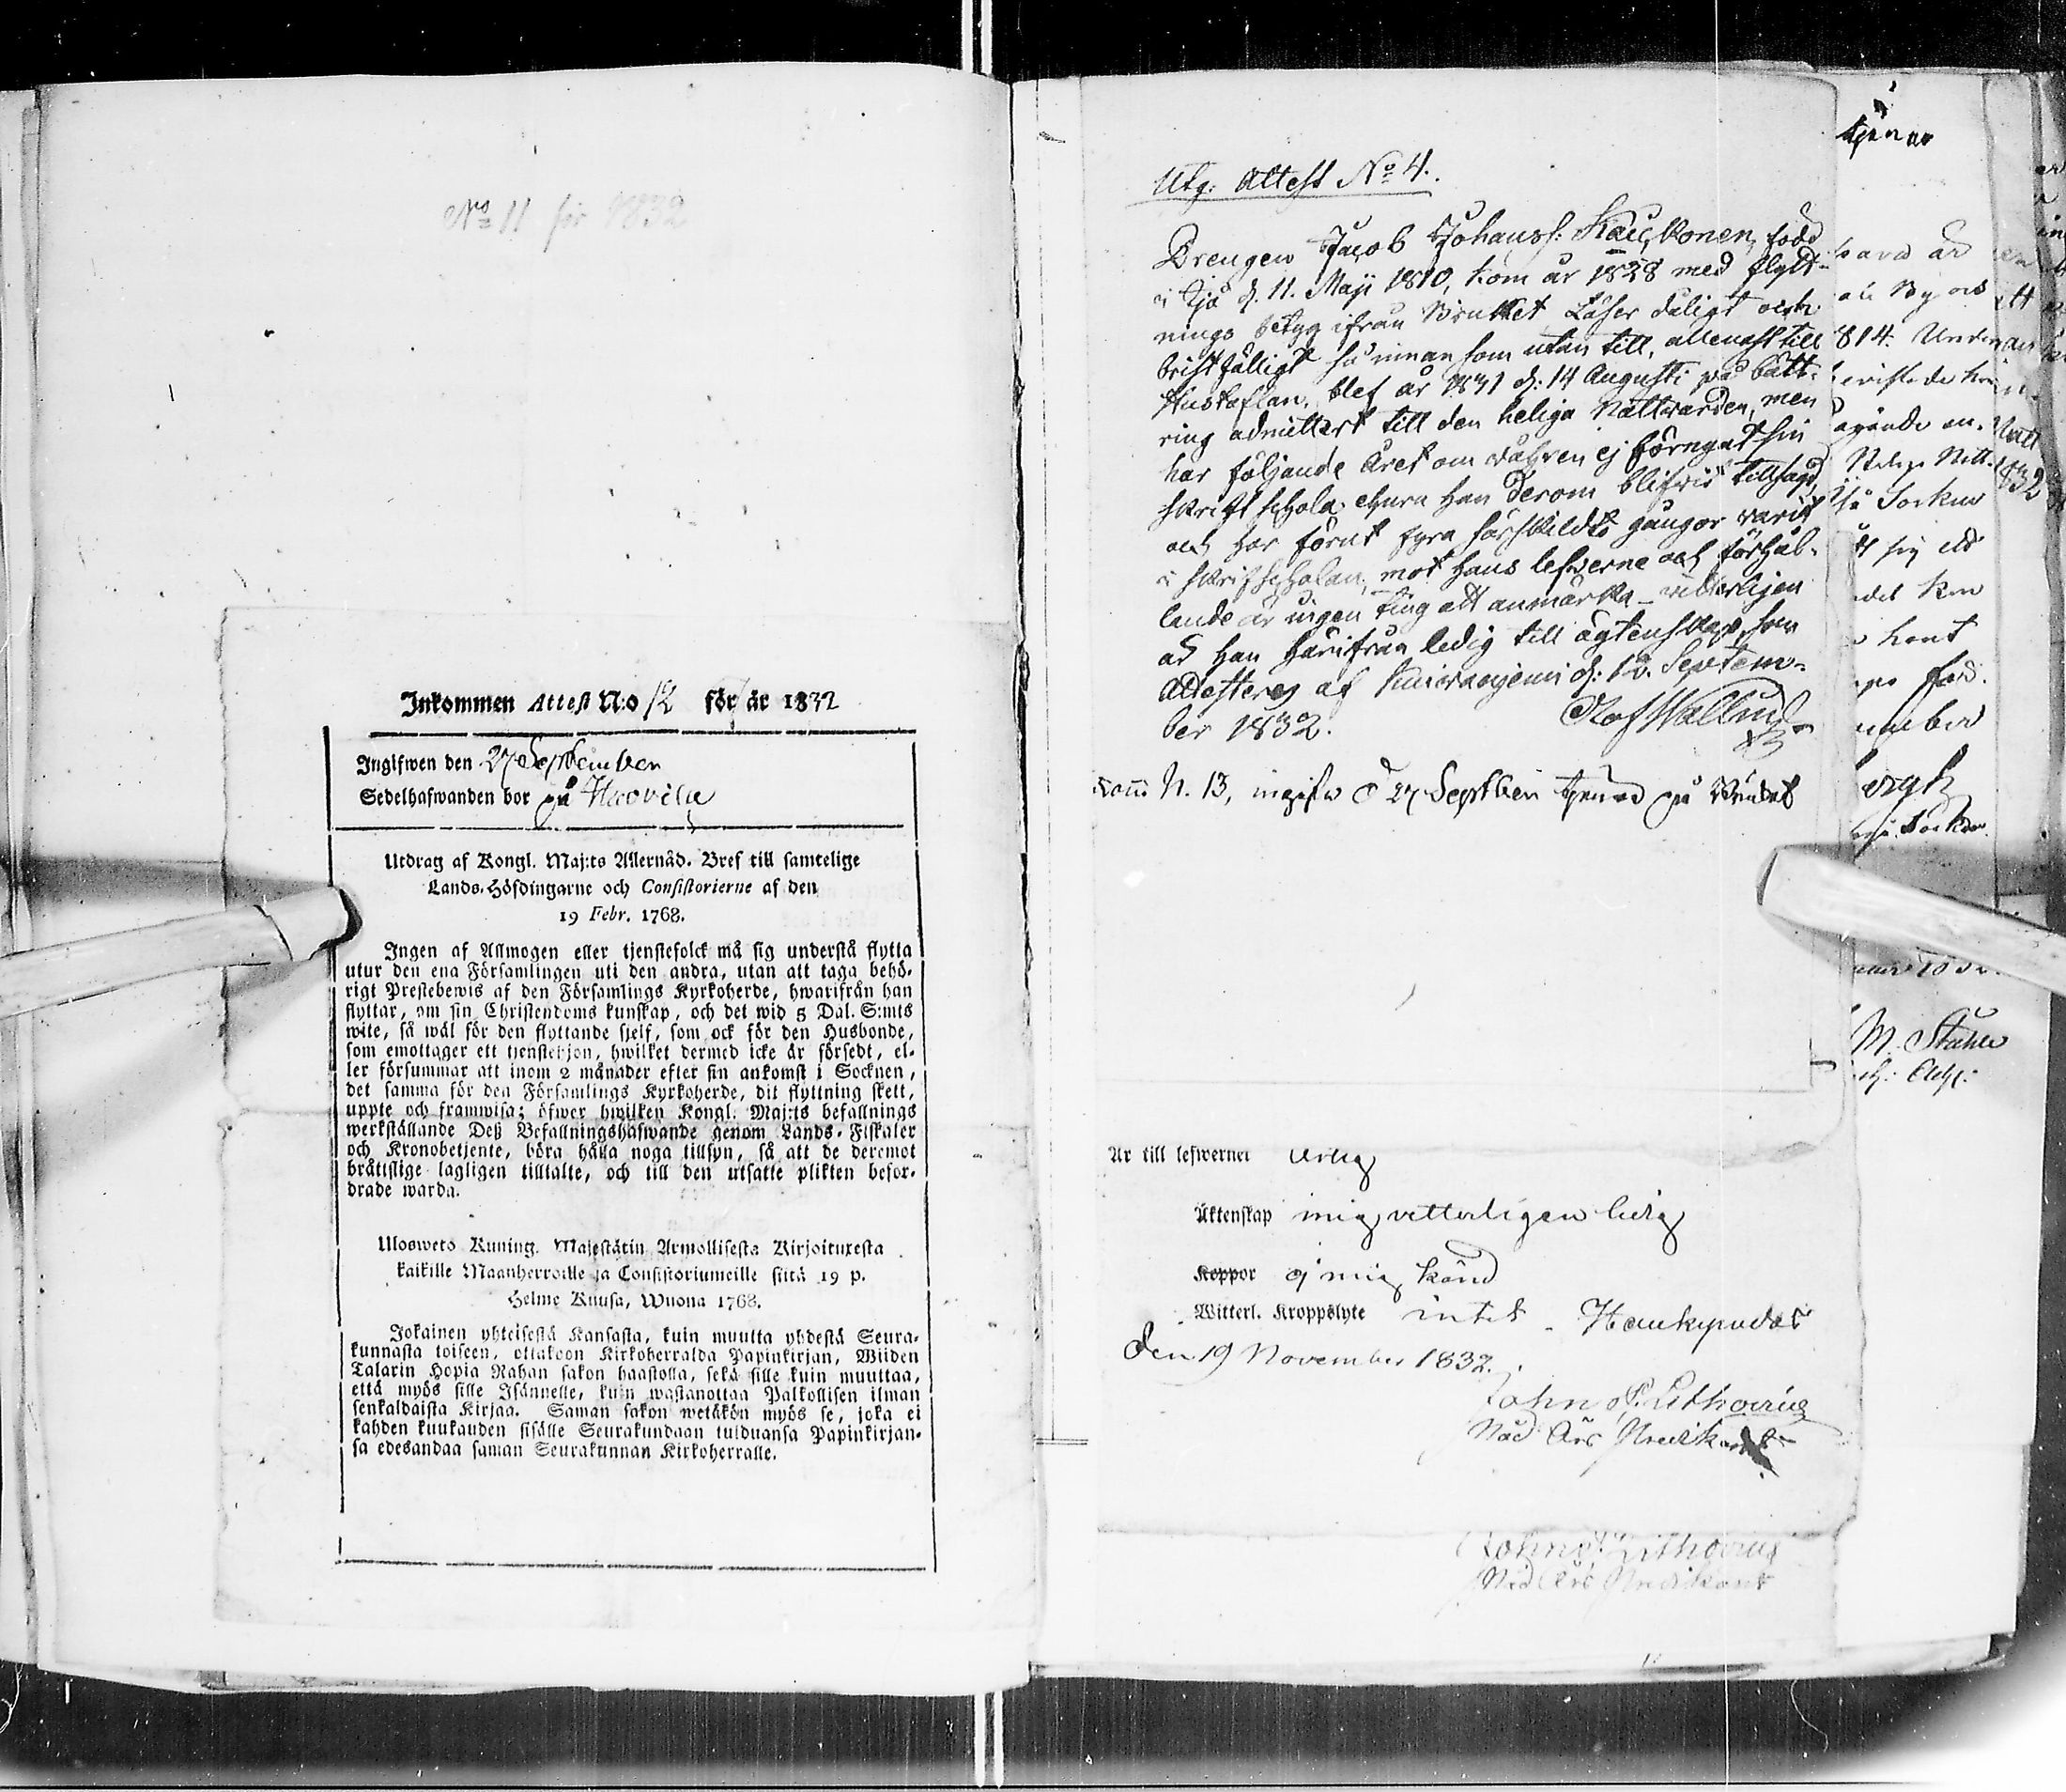 No 11 för 1832
Inkommen Attest N:o 12 för år 1832
Ingifwen den 27 September
Sedelhafwanden bor på
Utdrag af Kongl. Maj:ts Allernåd. Bref till samtelige
Lands-Höfdingarne och Consistorierne af den
19 Febr. 1768.
Ingen af Allmogen eller tjenstefolck må sig understå flytta
utur den ena Församlingen uti den andra, utan att taga behö-
rigt Prestebewis af den Församlings Kyrkoherde, hwarifrån han
flyttar, om sin Christendoms kunskap, och det wid 5 Dal. S:mts
wite, så wäl för den flyttande sjelf, som ock för den Husbonde,
som emottager ett tjenstehjon, hwilket dermed icke är försedt, el-
ler försummar att inom 2 månader efter sin ankomst i Socknen,
det samma för den Församlings Kyrkoherde, dit flyttning skett,
uppte och framwisa; öfwer hwilken Kongl. Maj:ts befallnings
werkställande Deß Befallningshafwande genom Lands-Fiskaler
och Kronobetjente, böra hålla noga tillsyn, så att de deremot
bråttslige lagligen tilltalte, och till den utsatte plikten befor-
drade warda.
Ulosweto Kuning. Majestätin Armollisesta Kirjoituxesta
kaikille Maanherroille ja Consistoriumeille siitä 19 p.
Helme Kuusa, Wuona 1768.
Jokainen yhteisestä Kansasta, kuin muutta yhdestä Seura-
kunnasta toiseen, ottakoon Kirkoherralda Papinkirjan, Wiiden
Talarin Hopia Rahan sakon haastolla, sekä sille kuin muuttaa,
että myös sille Isännelle, kuin wastanottaa Palkollisen ilman
senkaldaista Kirjaa. Saman sakon wetäkön myös se, joka ei
kahden kuukauden sisälle Seurakundaan tulduansa Papinkirjan-
sa edesandaa saman Seurakunnan Kirkoherralle.
Utg: Attest No 4.
Drengen Jacob Johanss: Kauckonen, född
i Ijo d. 11. Maji 1810, kom år 1828 med flytt-
nings betyg ifrån Bruket Läser dåligt och
bristfälligt så innan som utan till, allenast till
Hustaflan, blef år 1831 d: 14 Augusti på bätt-
ring admittert till den heliga Nattvarden, men
har följande året om våhren ej förnyat sin
skriftschola, ehuru han derom blifvit tillsagd,
och har förut fyra särskildta gångor varit
i skriftscholan; mot hans lefverne och förhål-
lande är ingen ting att anmärka – vitterligen
är han härifrån ledig till ägtenskap, som
attesteras af Kuivaniemi d: 12. Septem-
ber 1832.
N. 13, ingifv d 27 Septber på Bruket
Är till lefwernet ärlig
Äktenskap mig vetterligen ledig
Koppor ej mig känd
Witterl. Kroppslyte intet – Haukipudas
den 19 November 1832.
John P. Lithovius
Nåd Års Predikant
John P. Lithovius
Nåd Års Predikant
814.
1832
M. Ståhle